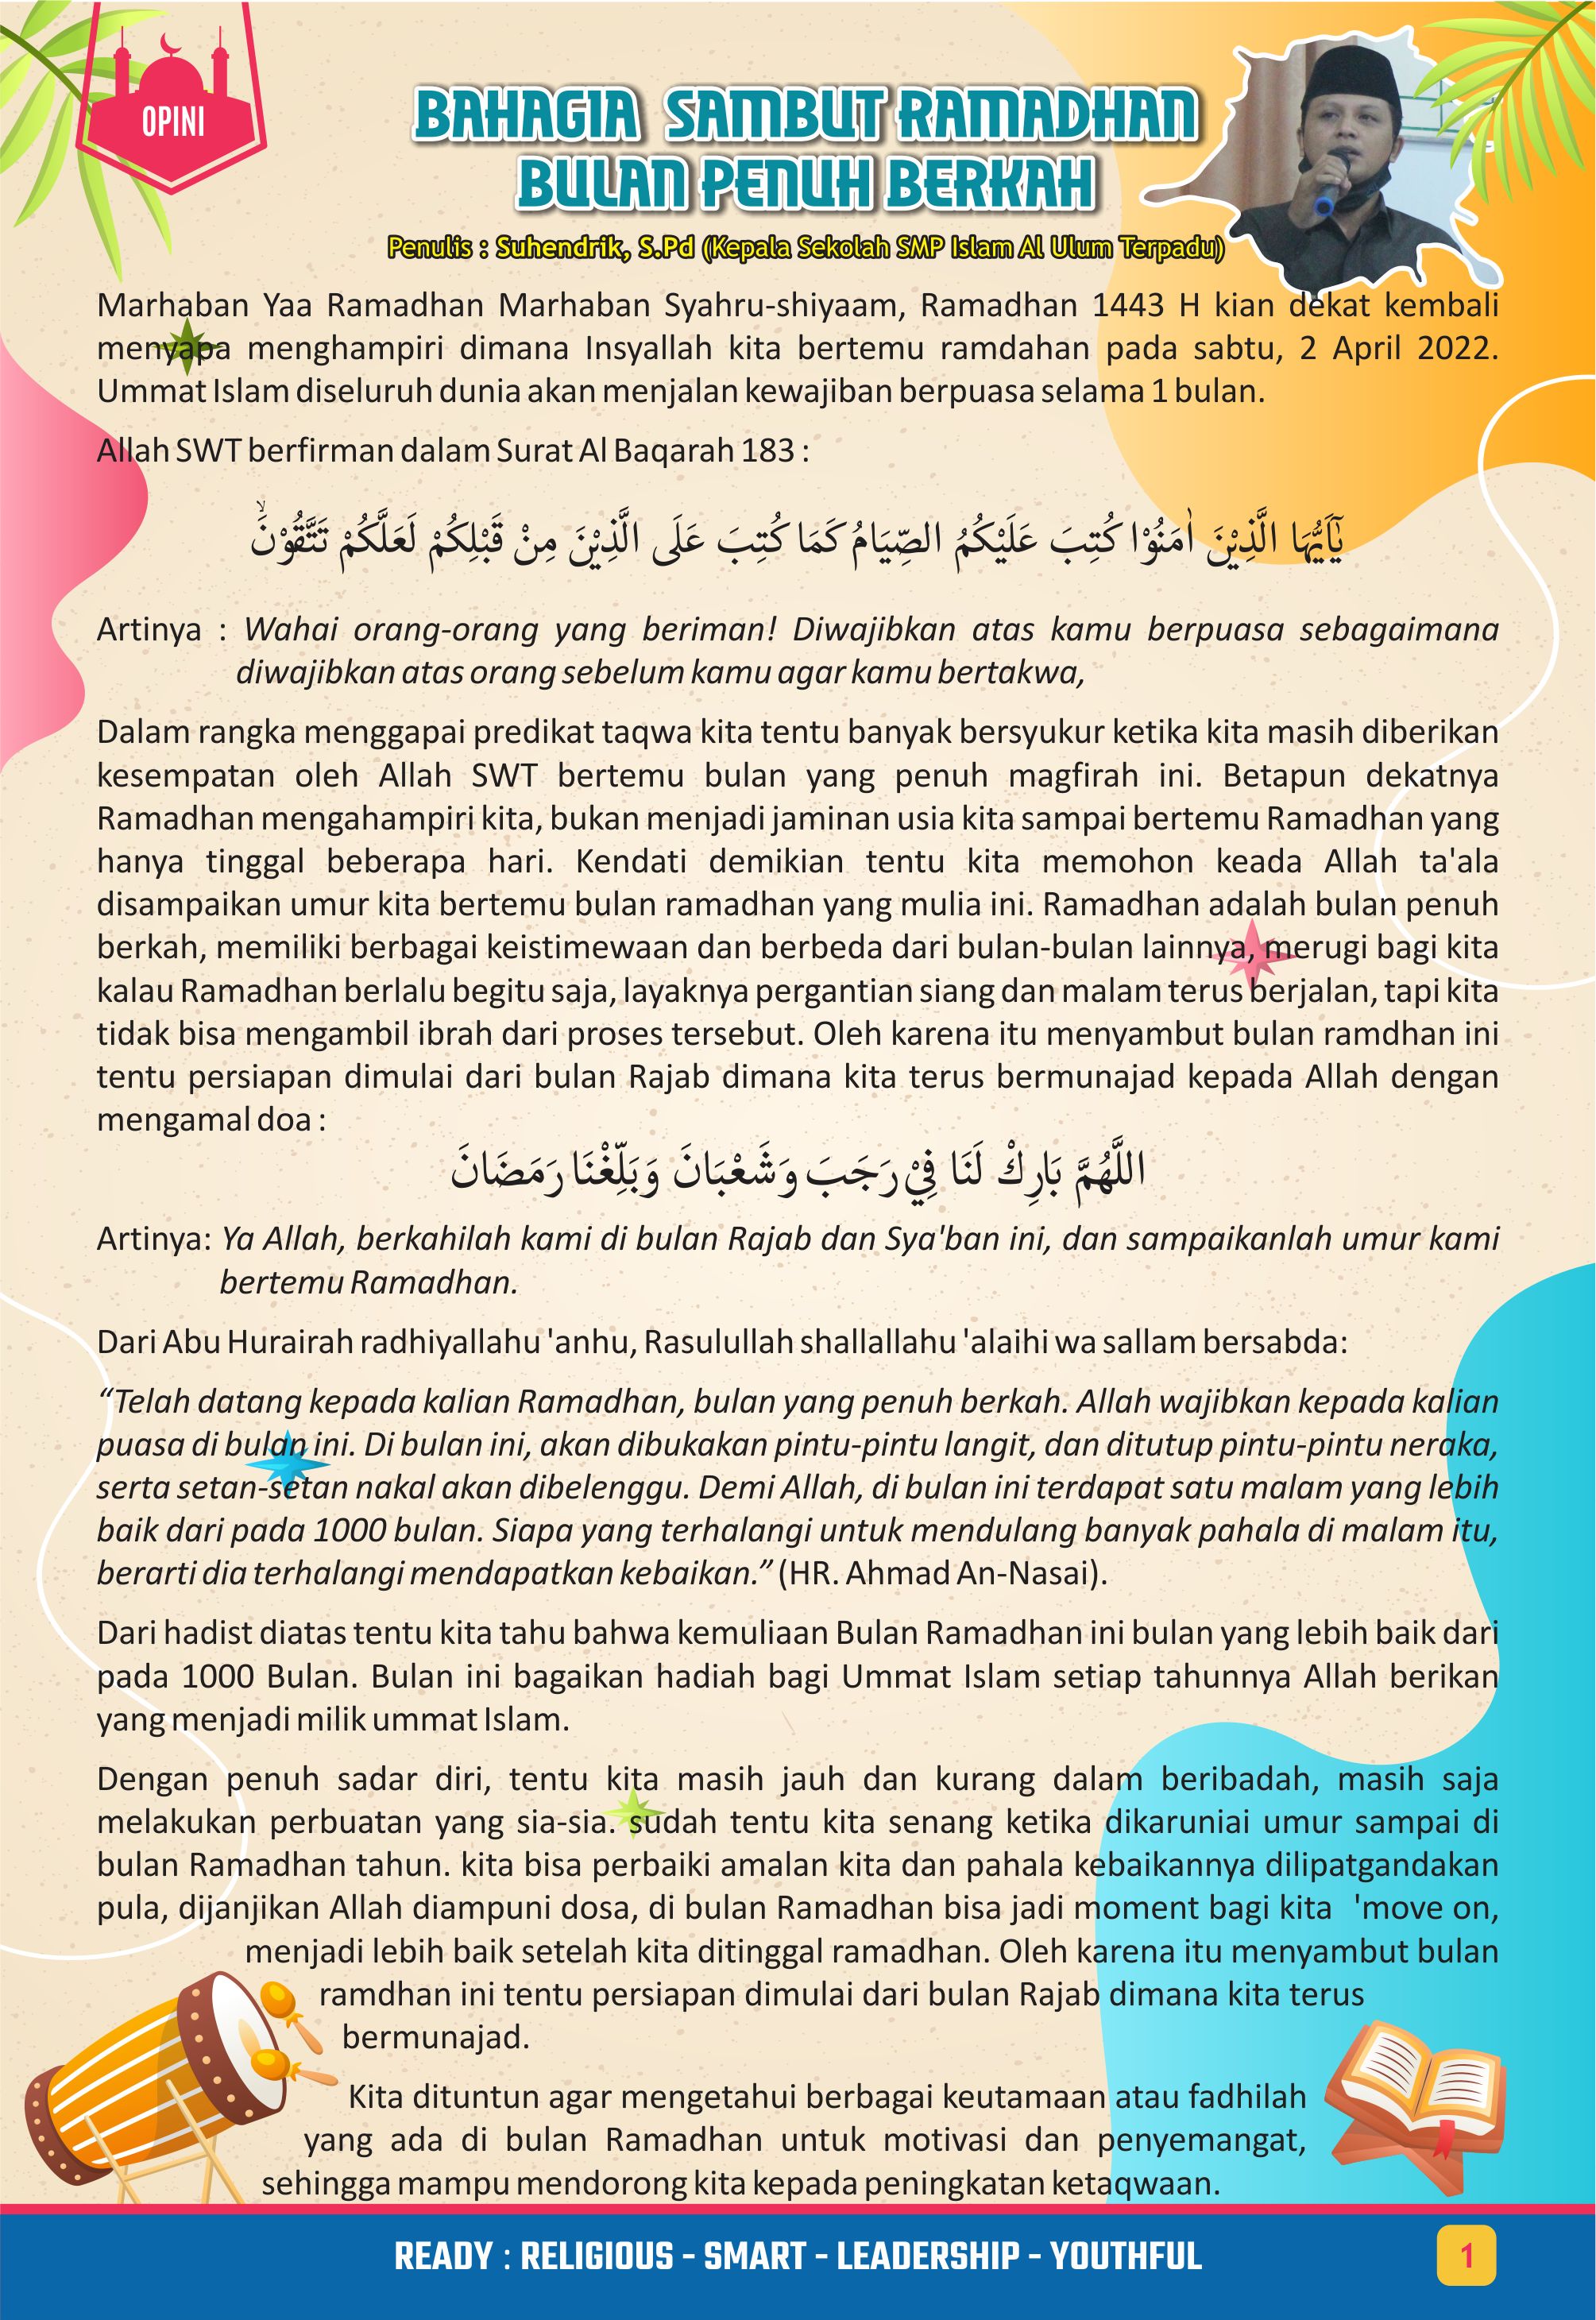 OPINI
BAHAGIA SAMBUT RAMADHAN
BULAN PENUH BERKAH
Penulis : Suhendrik, S.Pd (Kepala Sekolah SMP Islam Al Ulum Terpadu)
Marhaban Yaa Ramadhan Marhaban Syahru-shiyaam, Ramadhan 1443 H kian dekat kembali
menyapa menghampiri dimana Insyallah kita bertemu ramdahan pada sabtu, 2 April 2022.
Ummat Islam diseluruh dunia akan menjalan kewajiban berpuasa selama 1 bulan.
Allah SWT berfirman dalam Surat Al Baqarah 183 :
يٰٓاَيُّهَا الَّذِيْنَ اٰمَنُوْا كُتِبَ عَلَيْكُمُ الصِّيَامُ كَمَا كُتِبَ عَلَى الَّذِيْنَ مِنْ قَبْلِكُمْ لَعَلَّكُمْ تَتَّقُوْنَۙ
Artinya : Wahai orang-orang yang beriman! Diwajibkan atas kamu berpuasa sebagaimana
diwajibkan atas orang sebelum kamu agar kamu bertakwa,
Dalam rangka menggapai predikat taqwa kita tentu banyak bersyukur ketika kita masih diberikan
kesempatan oleh Allah SWT bertemu bulan yang penuh magfirah ini. Betapun dekatnya
Ramadhan mengahampiri kita, bukan menjadi jaminan usia kita sampai bertemu Ramadhan yang
hanya tinggal beberapa hari. Kendati demikian tentu kita memohon keada Allah ta'ala
disampaikan umur kita bertemu bulan ramadhan yang mulia ini. Ramadhan adalah bulan penuh
berkah, memiliki berbagai keistimewaan dan berbeda dari bulan-bulan lainnya, merugi bagi kita
kalau Ramadhan berlalu begitu saja, layaknya pergantian siang dan malam terus berjalan, tapi kita
tidak bisa mengambil ibrah dari proses tersebut. Oleh karena itu menyambut bulan ramdhan ini
tentu persiapan dimulai dari bulan Rajab dimana kita terus bermunajad kepada Allah dengan
mengamal doa :
اللَّهُمَّ بَارِكْ لَنَا فِيْ رَجَبَ وَشَعْبَانَ وَبَلِّغْنَا رَمَضَانَ
Artinya: Ya Allah, berkahilah kami di bulan Rajab dan Sya'ban ini, dan sampaikanlah umur kami
bertemu Ramadhan.
Dari Abu Hurairah radhiyallahu 'anhu, Rasulullah shallallahu 'alaihi wa sallam bersabda:
“Telah datang kepada kalian Ramadhan, bulan yang penuh berkah. Allah wajibkan kepada kalian
puasa di bulan ini. Di bulan ini, akan dibukakan pintu-pintu langit, dan ditutup pintu-pintu neraka,
serta setan-setan nakal akan dibelenggu. Demi Allah, di bulan ini terdapat satu malam yang lebih
baik dari pada 1000 bulan. Siapa yang terhalangi untuk mendulang banyak pahala di malam itu,
berarti dia terhalangi mendapatkan kebaikan.” (HR. Ahmad An-Nasai).
Dari hadist diatas tentu kita tahu bahwa kemuliaan Bulan Ramadhan ini bulan yang lebih baik dari
pada 1000 Bulan. Bulan ini bagaikan hadiah bagi Ummat Islam setiap tahunnya Allah berikan
yang menjadi milik ummat Islam.
Dengan penuh sadar diri, tentu kita masih jauh dan kurang dalam beribadah, masih saja
melakukan perbuatan yang sia-sia. sudah tentu kita senang ketika dikaruniai umur sampai di
bulan Ramadhan tahun. kita bisa perbaiki amalan kita dan pahala kebaikannya dilipatgandakan
pula, dijanjikan Allah diampuni dosa, di bulan Ramadhan bisa jadi moment bagi kita 'move on,
menjadi lebih baik setelah kita ditinggal ramadhan. Oleh karena itu menyambut bulan
ramdhan ini tentu persiapan dimulai dari bulan Rajab dimana kita terus
bermunajad.
Kita dituntun agar mengetahui berbagai keutamaan atau fadhilah
yang ada di bulan Ramadhan untuk motivasi dan penyemangat,
sehingga mampu mendorong kita kepada peningkatan ketaqwaan.
READY : RELIGIOUS - SMART - LEADERSHIP - YOUTHFUL
1